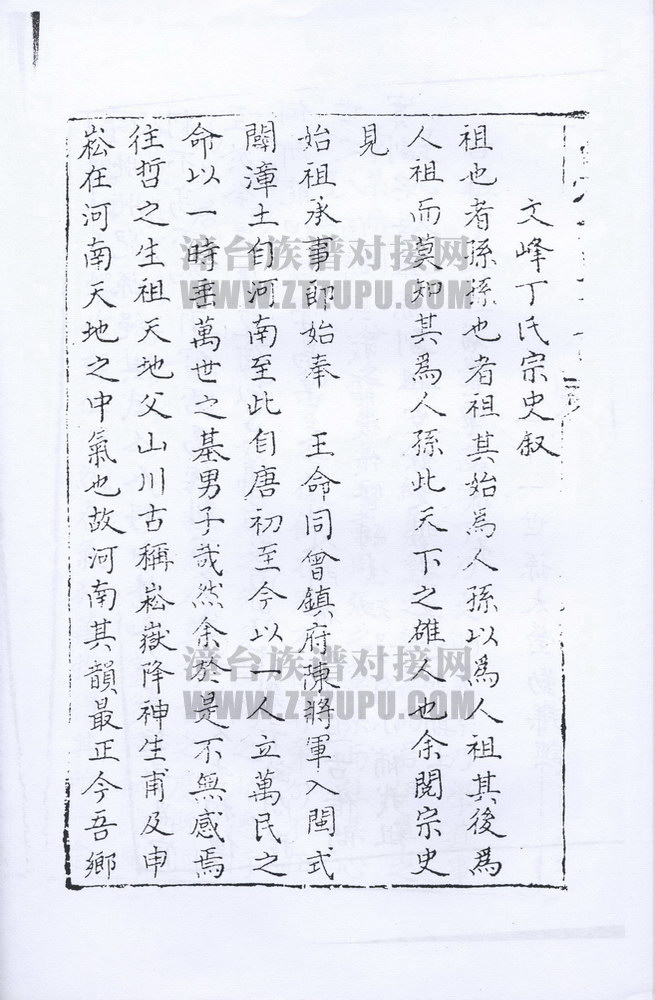 文峰丁氏宗史叙
祖也者孫孫也者祖其始爲人孫以爲人祖其後爲
人祖而莫知其爲人孫此天下之碓人也余閱宗史
見
始祖承事郎始奉 王命同曾鎮府陳將軍入閩式
闢漳土自河南至此自唐初至今以一人立萬民之
命以一時垂萬世之基男子哉然余於是不無感焉
往哲之生祖天地父山川古稱崧嶽降神生甫及申
崧在河南天地之中氣也故河南其韻最正今吾鄉
漳台族谱对接网
WWW.ZTZUPU.COM
漳台族谱对接网
WWW.ZTZUPU.COM